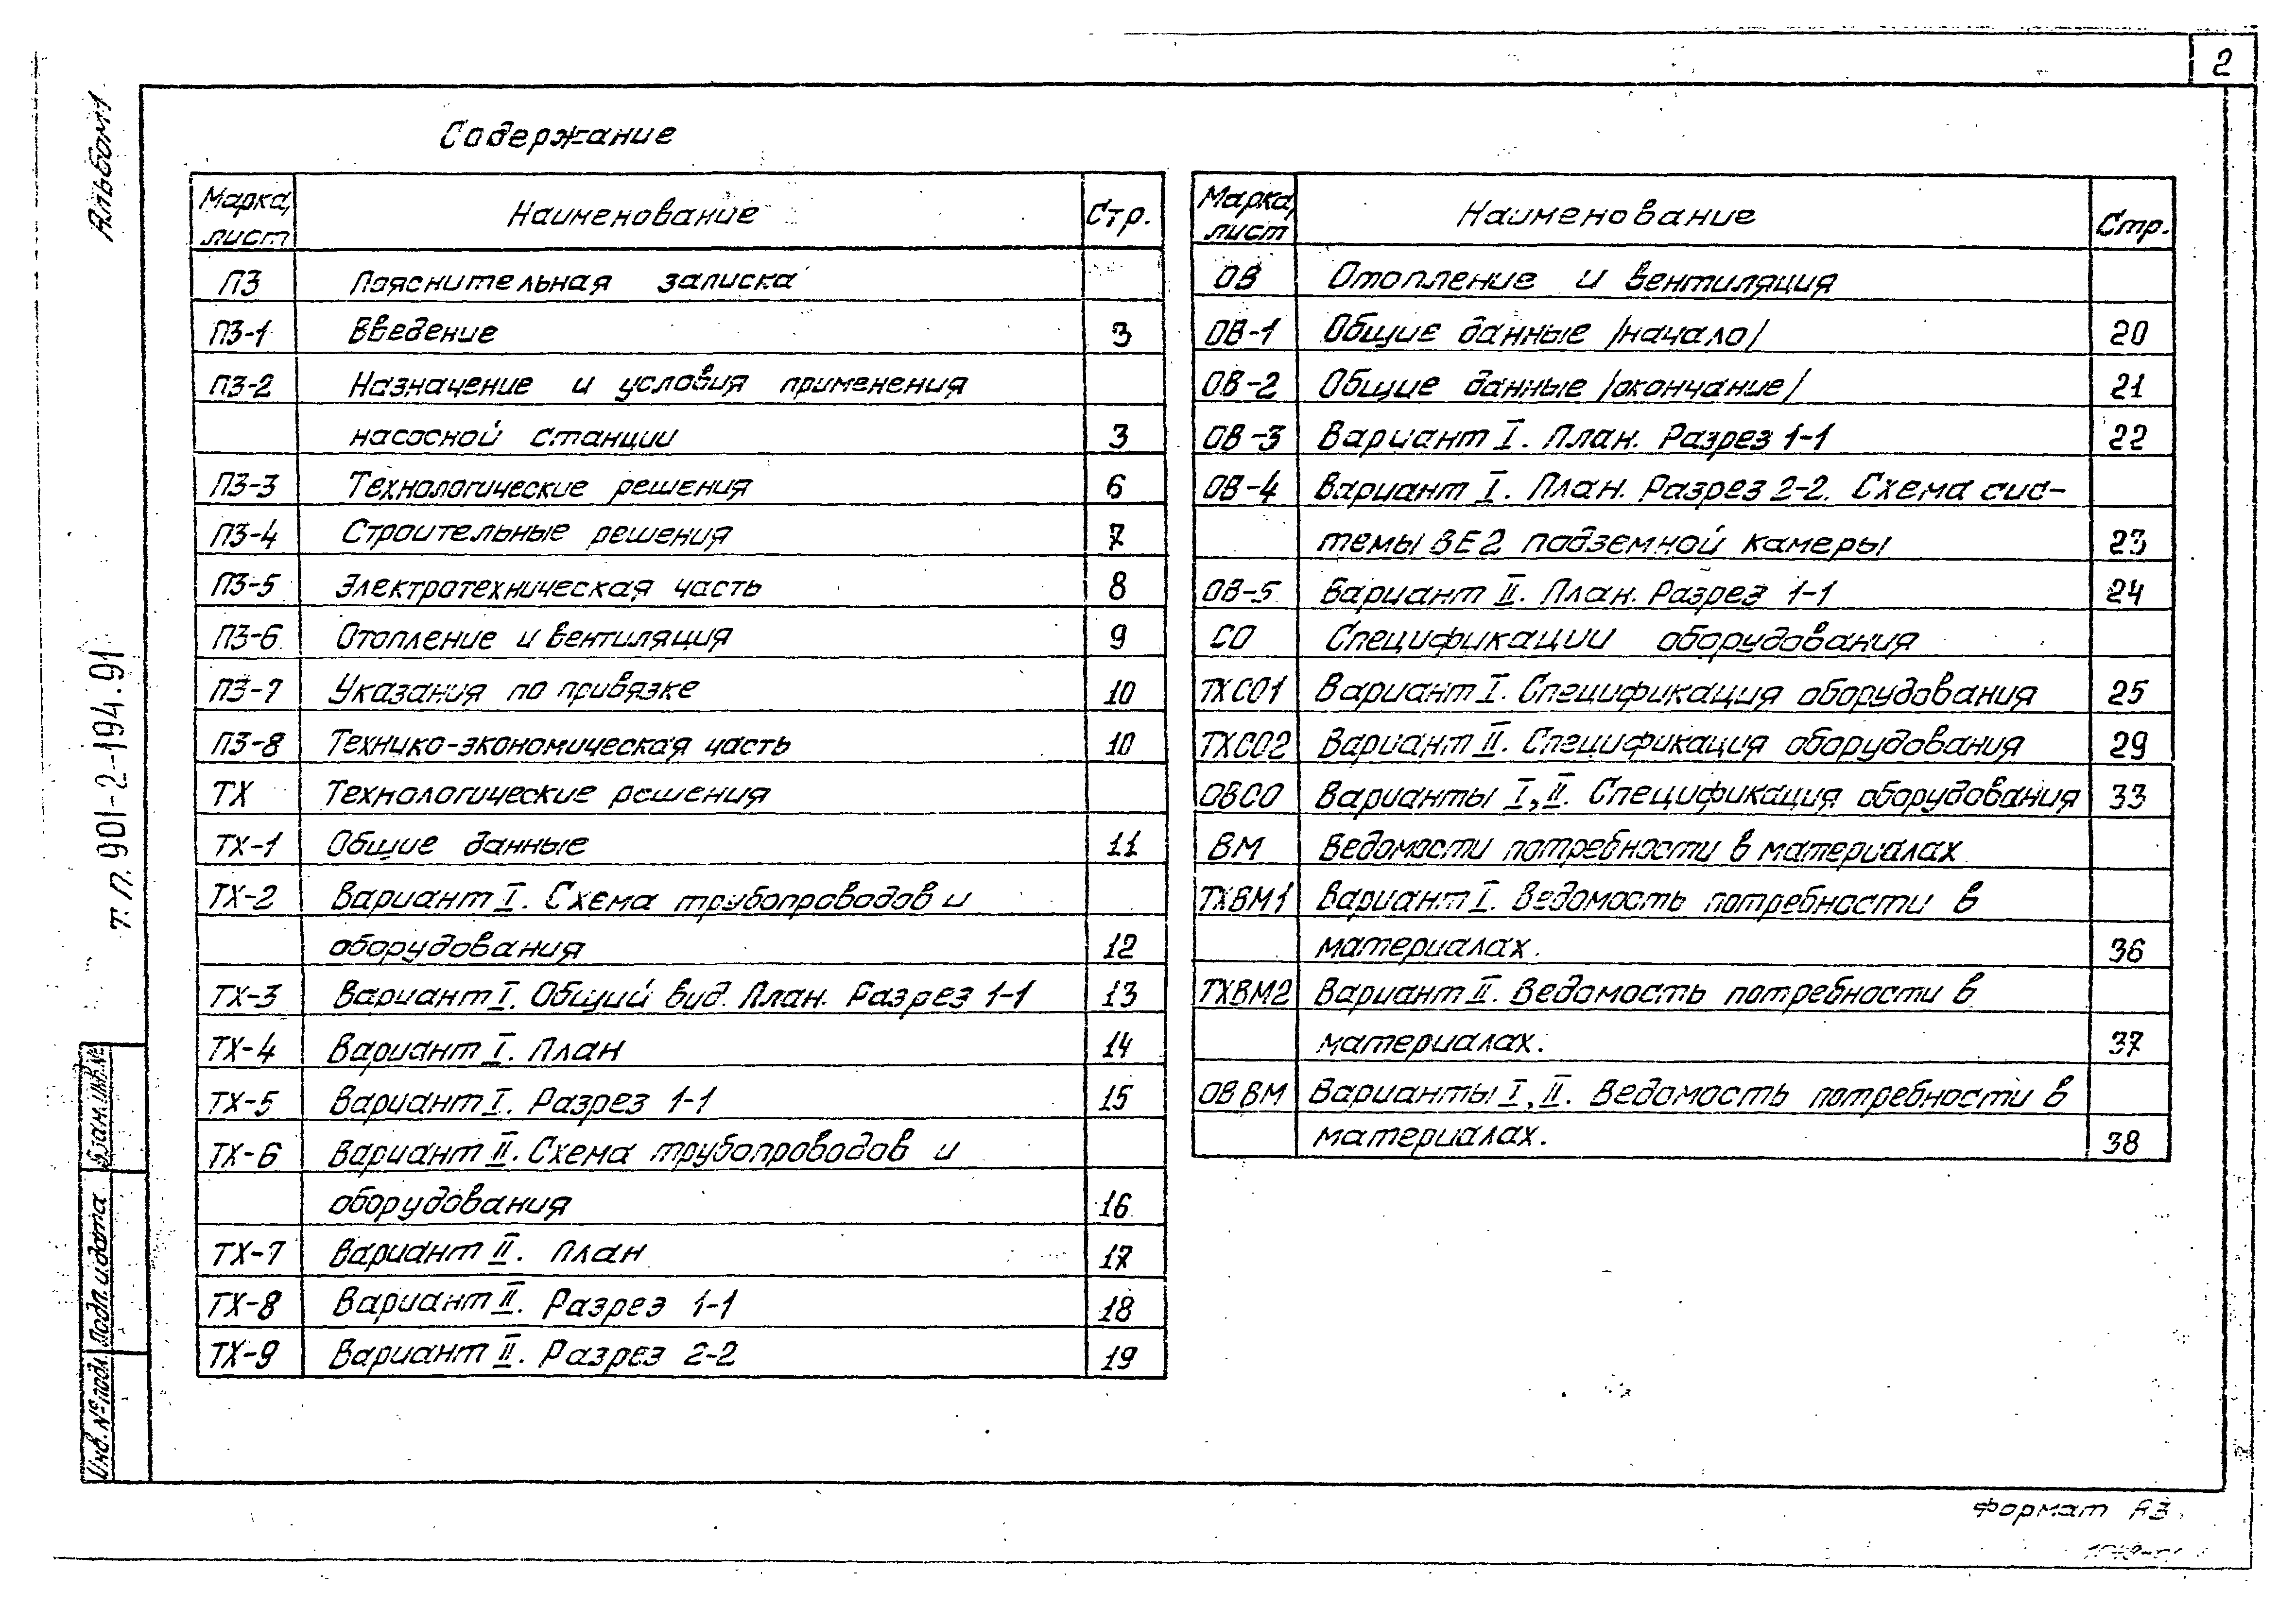 2
Альбом 1
т.п. 901-2-194.91
Взам. инв. №
Подп. и дата
Инв. № подл.
Содержание
Марка, лист Наименование Стр.
ПЗ Пояснительная записка
ПЗ-1 Введение 3
ПЗ-2 Назначение и условия применения
насосной станции 3
ПЗ-3 Технологические решения 6
ПЗ-4 Строительные решения 7
ПЗ-5 Электротехническая часть 8
ПЗ-6 Отопление и вентиляция 9
ПЗ-7 Указания по привязке 10
ПЗ-8 Технико-экономическая часть 10
ТХ Технологические решения
ТХ-1 Общие данные 11
ТХ-2 Вариант I. Схема трубопроводов и
оборудования 12
ТХ-3 Вариант I. Общий вид. План. Разрез 1-1 13
ТХ-4 Вариант I. План 14
ТХ-5 Вариант I. Разрез 1-1 15
ТХ-6 Вариант II. Схема трубопроводов и
оборудования 16
ТХ-7 Вариант II. План 17
ТХ-8 Вариант II. Разрез 1-1 18
ТХ-9 Вариант II. Разрез 2-2 19
Марка, лист Наименование Стр.
ОВ Отопление и вентиляция
ОВ-1 Общие данные /начало/ 20
ОВ-2 Общие данные /окончание/ 21
ОВ-3 Вариант I. План. Разрез 1-1 22
ОВ-4 Вариант I. План. Разрез 2-2. Схема сис-
темы ВЕ2 подземной камеры 23
ОВ-5 Вариант II. План. Разрез 1-1 24
СО Спецификации оборудования
ТХСО1 Вариант I. Спецификация оборудования 25
ТХСО2 Вариант II. Спецификация оборудования 29
ОВСО Варианты I, II. Спецификация оборудования 33
ВМ Ведомости потребности в материалах
ТХВМ1 Вариант I. Ведомость потребности в
материалах. 36
ТХВМ2 Вариант II. Ведомость потребности в
материалах. 37
ОВ ВМ Варианты I, II. Ведомость потребности в
материалах. 38
Формат А3